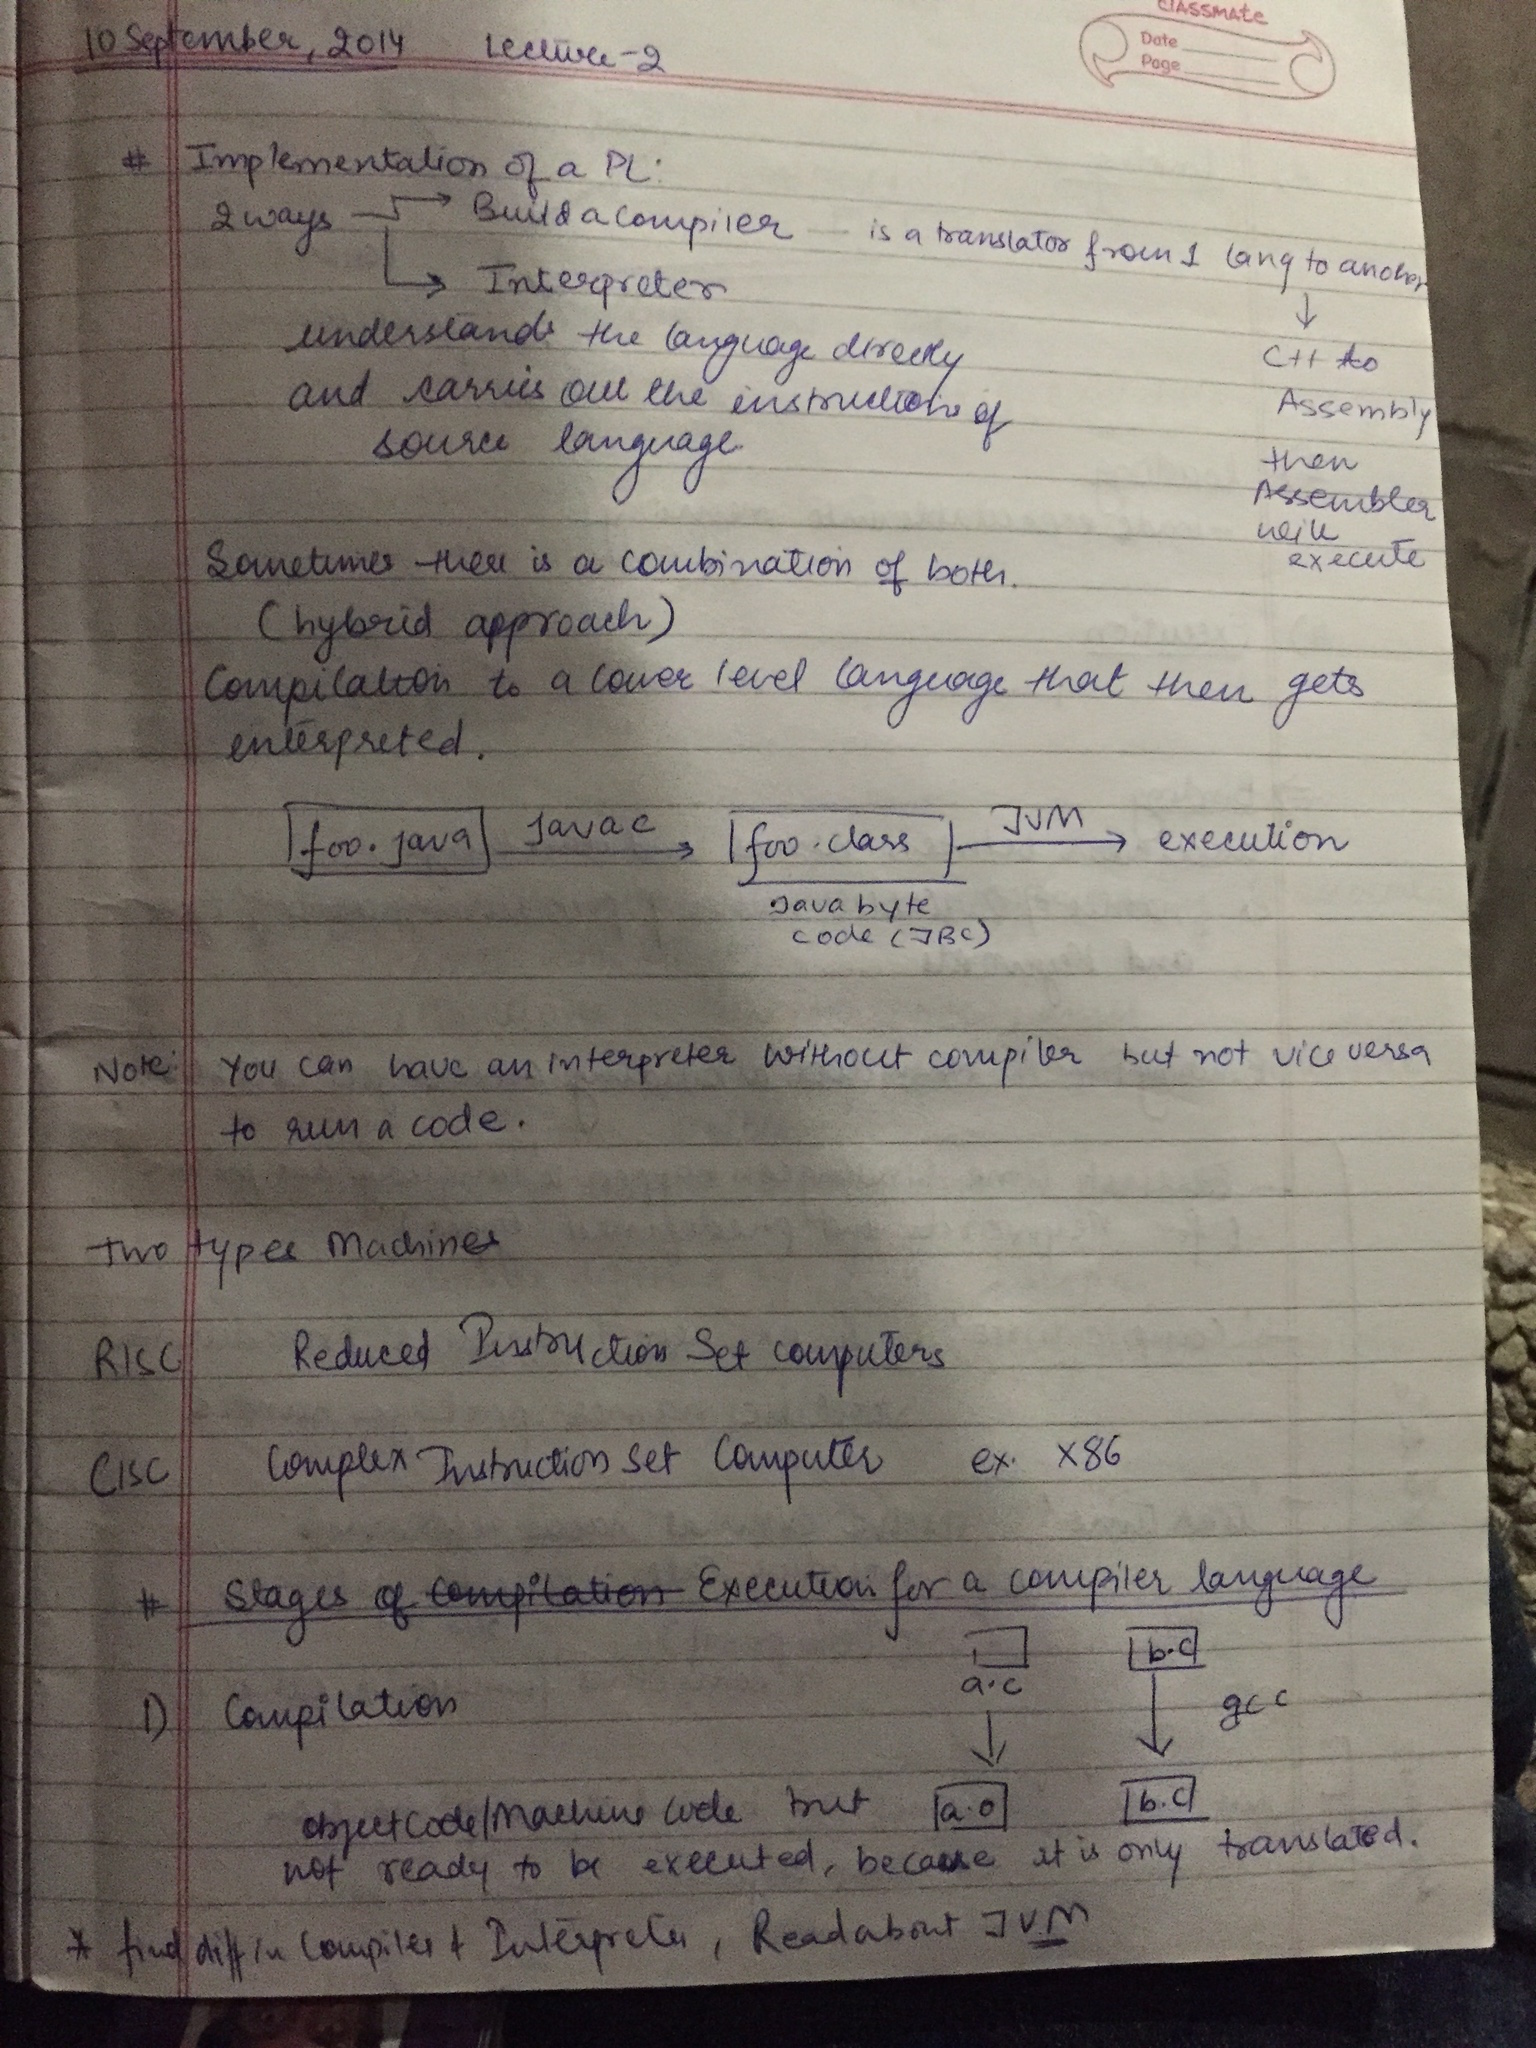 classmate
Date
Page
10 September, 2014 Lecture-2
# Implementation of a PL:
2 ways → Build a compiler — is a translator from 1 lang to another
→ Interpreter
↓
understands the language directly
C++ to
and carries out the instructions of
Assembly
source language
then
Assembler
will
execute
Sometimes there is a combination of both.
(hybrid approach)
Compilation to a lower level language that then gets
interpreted.
foo.java Javac → foo.class JVM → execution
Java byte
code (JBC)
Note: You can have an interpreter without compiler but not vice versa
to run a code.
Two types Machines
RISC Reduced Instruction Set computers
CISC Complex Instruction Set Computer ex. X86
# Stages of compilation Execution for a compiler language
b.c
a.c
1) Compilation gcc
object code/Machine code but a.o b.c
not ready to be executed, because it is only translated.
* find diff in Compiler & Interpreter, Read about JVM